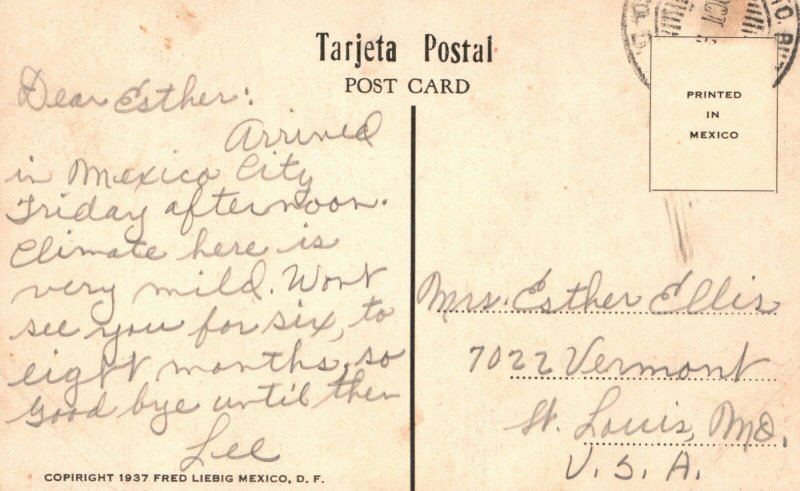 Tarjeta Postal
POST CARD
PRINTED
IN
MEXICO
Dear Esther:
Arrived
in Mexico City
Friday afternoon.
Climate here is
very mild. Wont
see you for six, to
eight months, so
good bye until then
Lee
Mrs. Esther Ellis
7022 Vermont
St. Louis, Mo.
U.S.A.
COPIRIGHT 1937 FRED LIEBIG MEXICO, D. F.